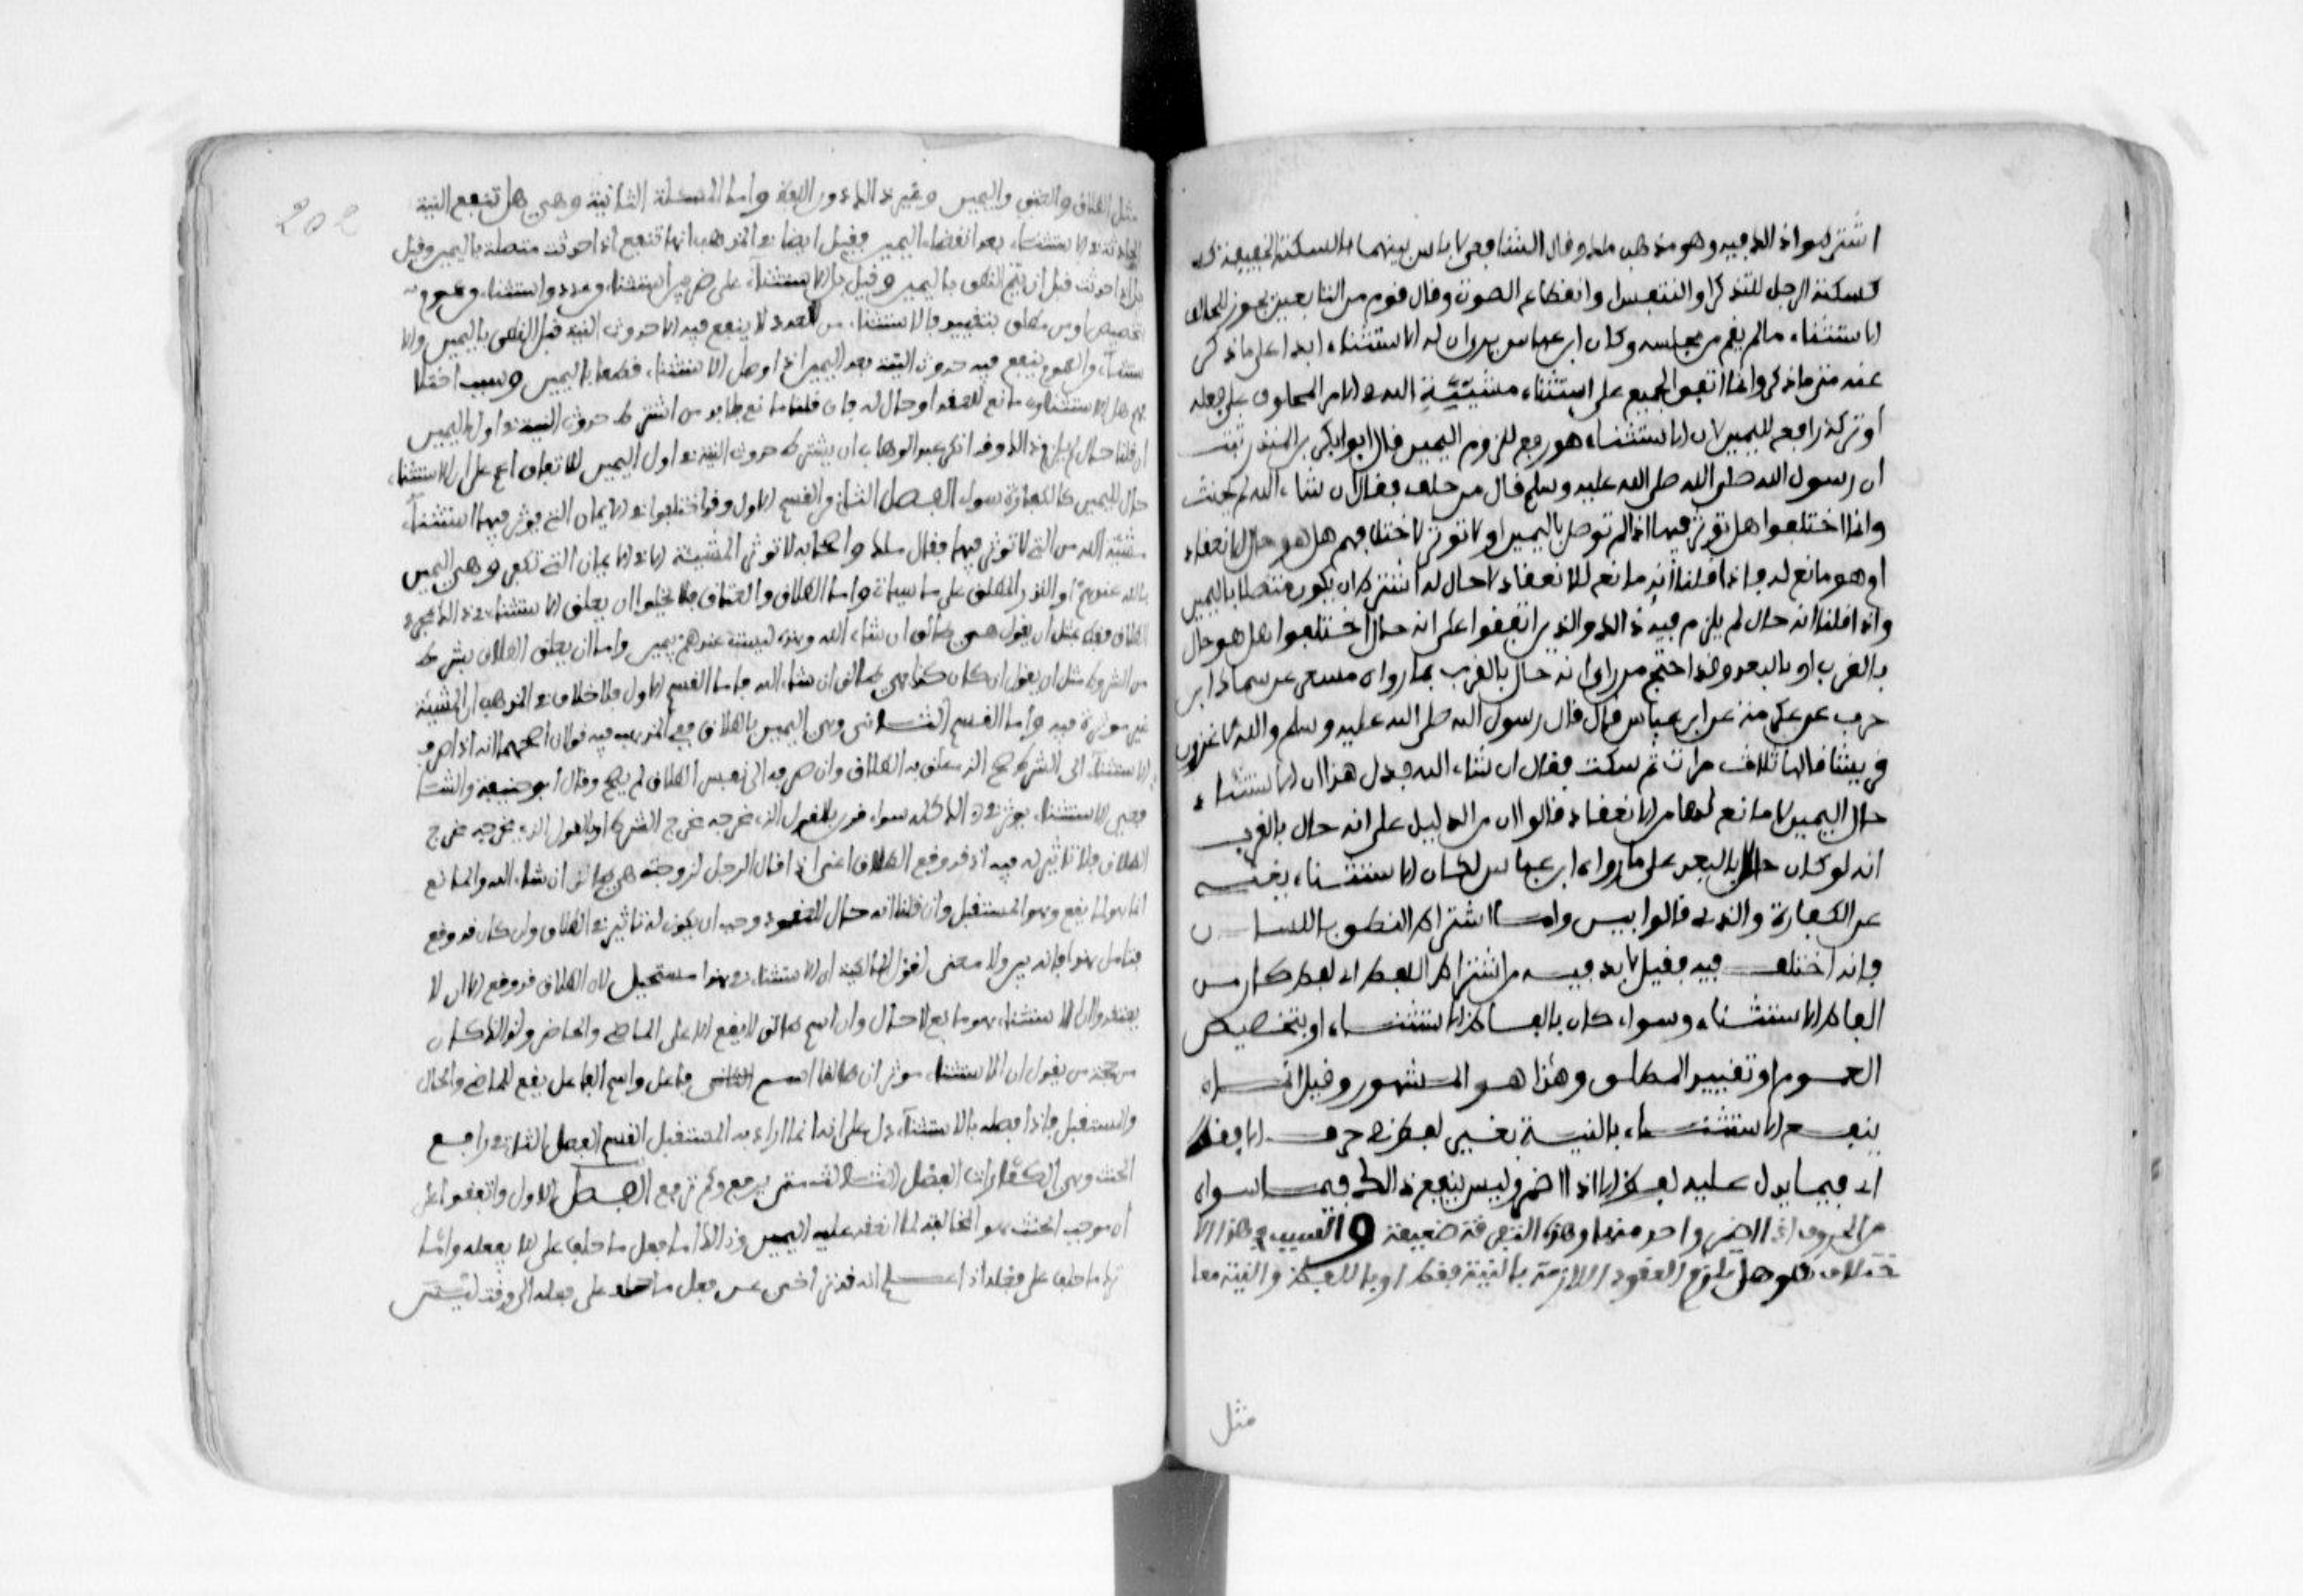 اشترطوا ذلك فيه وهو مذهب ملك وقال الشافعي لا باس بينهما بالسكتة الخفيفة
كسكتة الرجل للتذكر او للتنفس او انقطاع الصوت وقال قوم من التابعين يجوز للحالف
الاستثناء ما لم يقم من مجلسه وكان ابن عباس يرى ان له الاستثناء ابدا على ما ذكر
عنه متى ما ذكر وانما اتفق الجميع على استثناء مشيئة الله في الامر المحلوف على فعله
او تركه رافع لليمين لان الاستثناء هو رفع للزوم اليمين قال ابو بكر بن المنذر ثبت
ان رسول الله صلى الله عليه وسلم قال من حلف فقال ان شاء الله لم يحنث
وانما اختلفوا هل توثر فيها اذا لم توصل باليمين او لا توثر لاختلافهم هل هو حال للانعقاد
او هو مانع له فاذا قلنا انه مانع للانعقاد لا حال له اشترط ان يكون متصلا باليمين
واذا قلنا انه حال لم يلزم فيه ذلك والذين اتفقوا على انه حال اختلفوا هل هو حال
بالقرب او بالبعد وقد احتج من راى انه حال بالقرب بما رواه مسعر عن سماك بن
حرب عن عكرمة عن ابن عباس قال قال رسول الله صلى الله عليه وسلم والله لاغزون
قريشا قالها ثلاث مرات ثم سكت فقال ان شاء الله فدل هذا ان الاستثناء
حال اليمين لا مانع لها من الانعقاد قالوا ان من الدليل على انه حال بالقرب
انه لو كان حالا بالبعد على ما رواه ابن عباس لكان الاستثناء يغنيه
عن الكفارة والذي قالوا بين واما اشتراط النطق باللسان
فانه اختلف فيه فقيل لا بد فيه من اشتراط اللفظ اي لفظ كان من
الفاظ الاستثناء وسواء كان بالفاظ الاستثناء او بتخصيص
العموم او تقييد المطلق وهذا هو المشهور وقيل انما
ينفع الاستثناء بالنية بغير لفظ في حرف الا فقط
اي فيما يدل عليه لفظ الا اذا اضمر وليس ينفع ذلك فيما سواه
من الحروف اذا اضمر واحد منها وهذه التفرقة ضعيفة والسبب في هذا الا
ختلاف هو هل تلزم العقود اللازمة بالنية فقط او باللفظ والنية معا
مثل
202
مثل الطلاق والعتق واليمين وغير ذلك واما المسئلة الثانية وهي هل تنفع النية
الحادثة في الاستثناء بعد انقضاء اليمين فقيل ايضا في المذهب انها تنفع اذا حدثت متصلة باليمين وقيل
بل اذا حدثت قبل ان يتم النطق باليمين وقيل بل الاستثناء على ضربين استثناء من عدد واستثناء من عموم
بتخصيص او من مطلق بتقييد فالاستثناء من العدد لا ينفع فيه الا حدوث النية قبل النطق باليمين والا
ستثناء من العموم ينفع فيه حدوث النية بعد اليمين اذا وصل الاستثناء نطقا باليمين وسبب اختلا
فهم هل الاستثناء مانع للعقد او حال له فان قلنا مانع فلا بد من اشتراط حدوث النية في اول اليمين
وان قلنا حال لم يلزم ذلك وقد انكر عبد الوهاب ان يشترط حدوث النية في اول اليمين للاتفاق على ان الاستثناء
حال لليمين كالكفارة سواء الفصل الثاني من القسم الاول وقد اختلفوا في الايمان التي يوثر فيها استثناء
مشيئة الله من التي لا توثر فيها فقال ملك واصحابه لا توثر المشيئة الا في الايمان التي تكفر وهي اليمين
بالله عندهم او النذر المطلق على ما سياتي واما الطلاق والعتاق فلا يخلو ان يعلق الاستثناء في ذلك بمجرد
الطلاق فقط مثل ان يقول هي طالق ان شاء الله وهذه ليست عندهم يمين واما ان يعلق الطلاق بشرط
من الشروط مثل ان يقول ان كان كذا فهي طالق ان شاء الله فاما القسم الاول فلا خلاف في المذهب ان المشيئة
غير موثرة فيه واما القسم الثاني وهي اليمين بالطلاق ففي المذهب فيه قولان اصحهما انه اذا صرف
الاستثناء الى الشرط الذي علق به الطلاق صح وان صرفه الى نفس الطلاق لم يصح وقال ابو حنيفة والشا
فعي الاستثناء يوثر في ذلك كله سواء قرنه بالقول الذي مخرجه مخرج الشرط او بالقول الذي مخرجه مخرج
الطلاق فلا تاثير له فيه اذ قد وقع الطلاق اعني اذا قال الرجل لزوجته هي طالق ان شاء الله والمانع
انما هو لما يقع وهو المستقبل وان قلنا انه حال للعقود وجب ان يكون له تاثير في الطلاق وان كان قد وقع
فتامل هذا فانه بين ولا معنى لقول المالكية ان الاستثناء في هذا مستحيل لان الطلاق قد وقع الا ان
يعتقدوا ان الاستثناء هو مانع لا حال وان اسم طالق لا يقع الا على الماضي والحاضر
من حجة من يقول ان الاستثناء موثر ان طالقا اسم فاعل واسم الفاعل يقع للماضي والحال
والمستقبل فاذا فصله بالاستثناء دل على انه انما اراد به المستقبل القسم الثاني رافع
الحنث وهي الكفارات الفصل الثالث متى يرفع وكم ترفع الفصل الاول واتفقوا على
ان موجب الحنث هو المخالفة لما انعقد عليه اليمين وذلك اما فعل ما حلف على الا يفعله واما
ترك ما حلف على فعله اذا علم انه قد تراخى عن فعل ما حلف على فعله الى وقت ليس